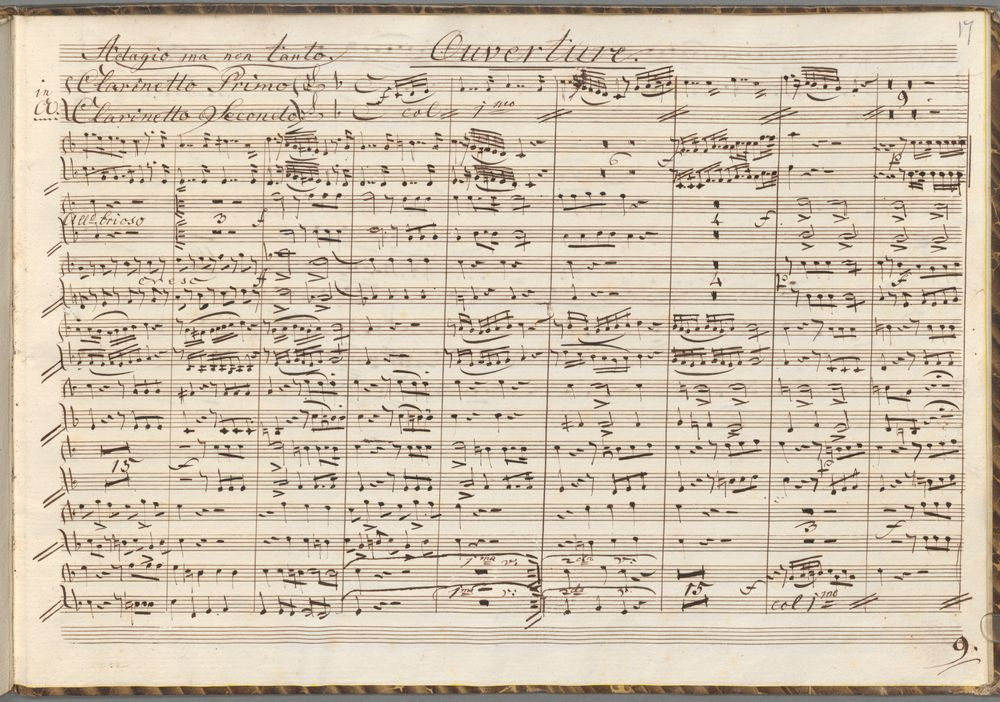 17
Adagio ma non tanto. Ouverture.
in
Clarinetto Primo f
Clarinetto Secondo col 1mo 9
6 f p
Allo brioso 3 f 4 f
cresc f 4 p
15 f p
3 f
1ma v: 2da v:
1ma v: 2da v: 15 f col 1mo
9.